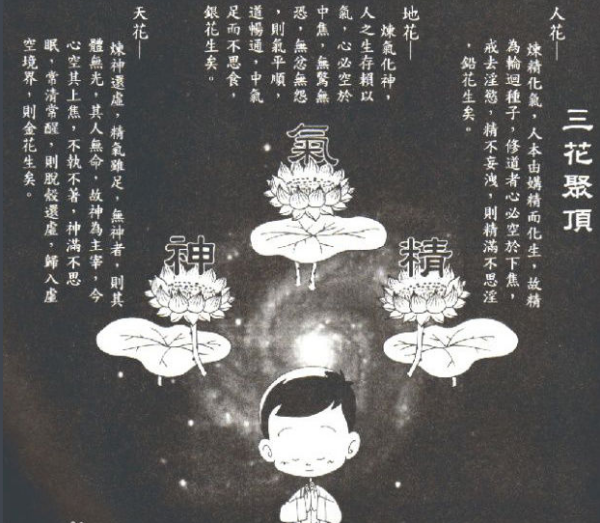 三花聚頂
人花—
煉精化氣，人本由媾精而化生，故精
為輪迴種子，修道者心必空於下焦，
戒去淫慾，精不妄洩，則精滿不思淫
，鉛花生矣。
地花—
煉氣化神，
人之生存賴以
氣，心必空於
中焦，無驚無
恐，無忿無怨
，則氣平順，
道暢通，中氣
足而不思食，
銀花生矣。
天花—
煉神還虛，精氣雖足，無神者，則其
體無光，其人無命，故神為主宰，今
心空其上焦，不執不著，神滿不思
眠，常清常醒，則脫殼還虛，歸入虛
空境界，則金花生矣。
精
氣
神